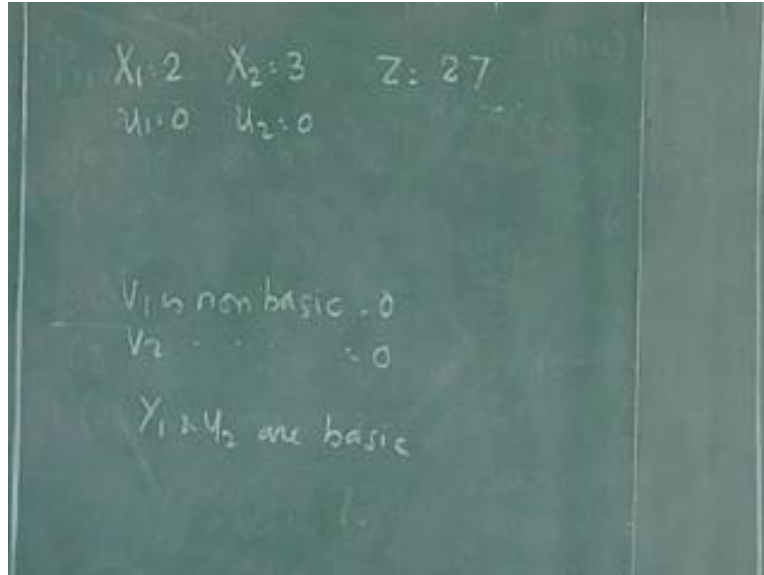 X1=2 X2=3 Z=27
u1=0 u2=0
V1 is non basic = 0
V2 " " = 0
Y1 & Y2 are basic